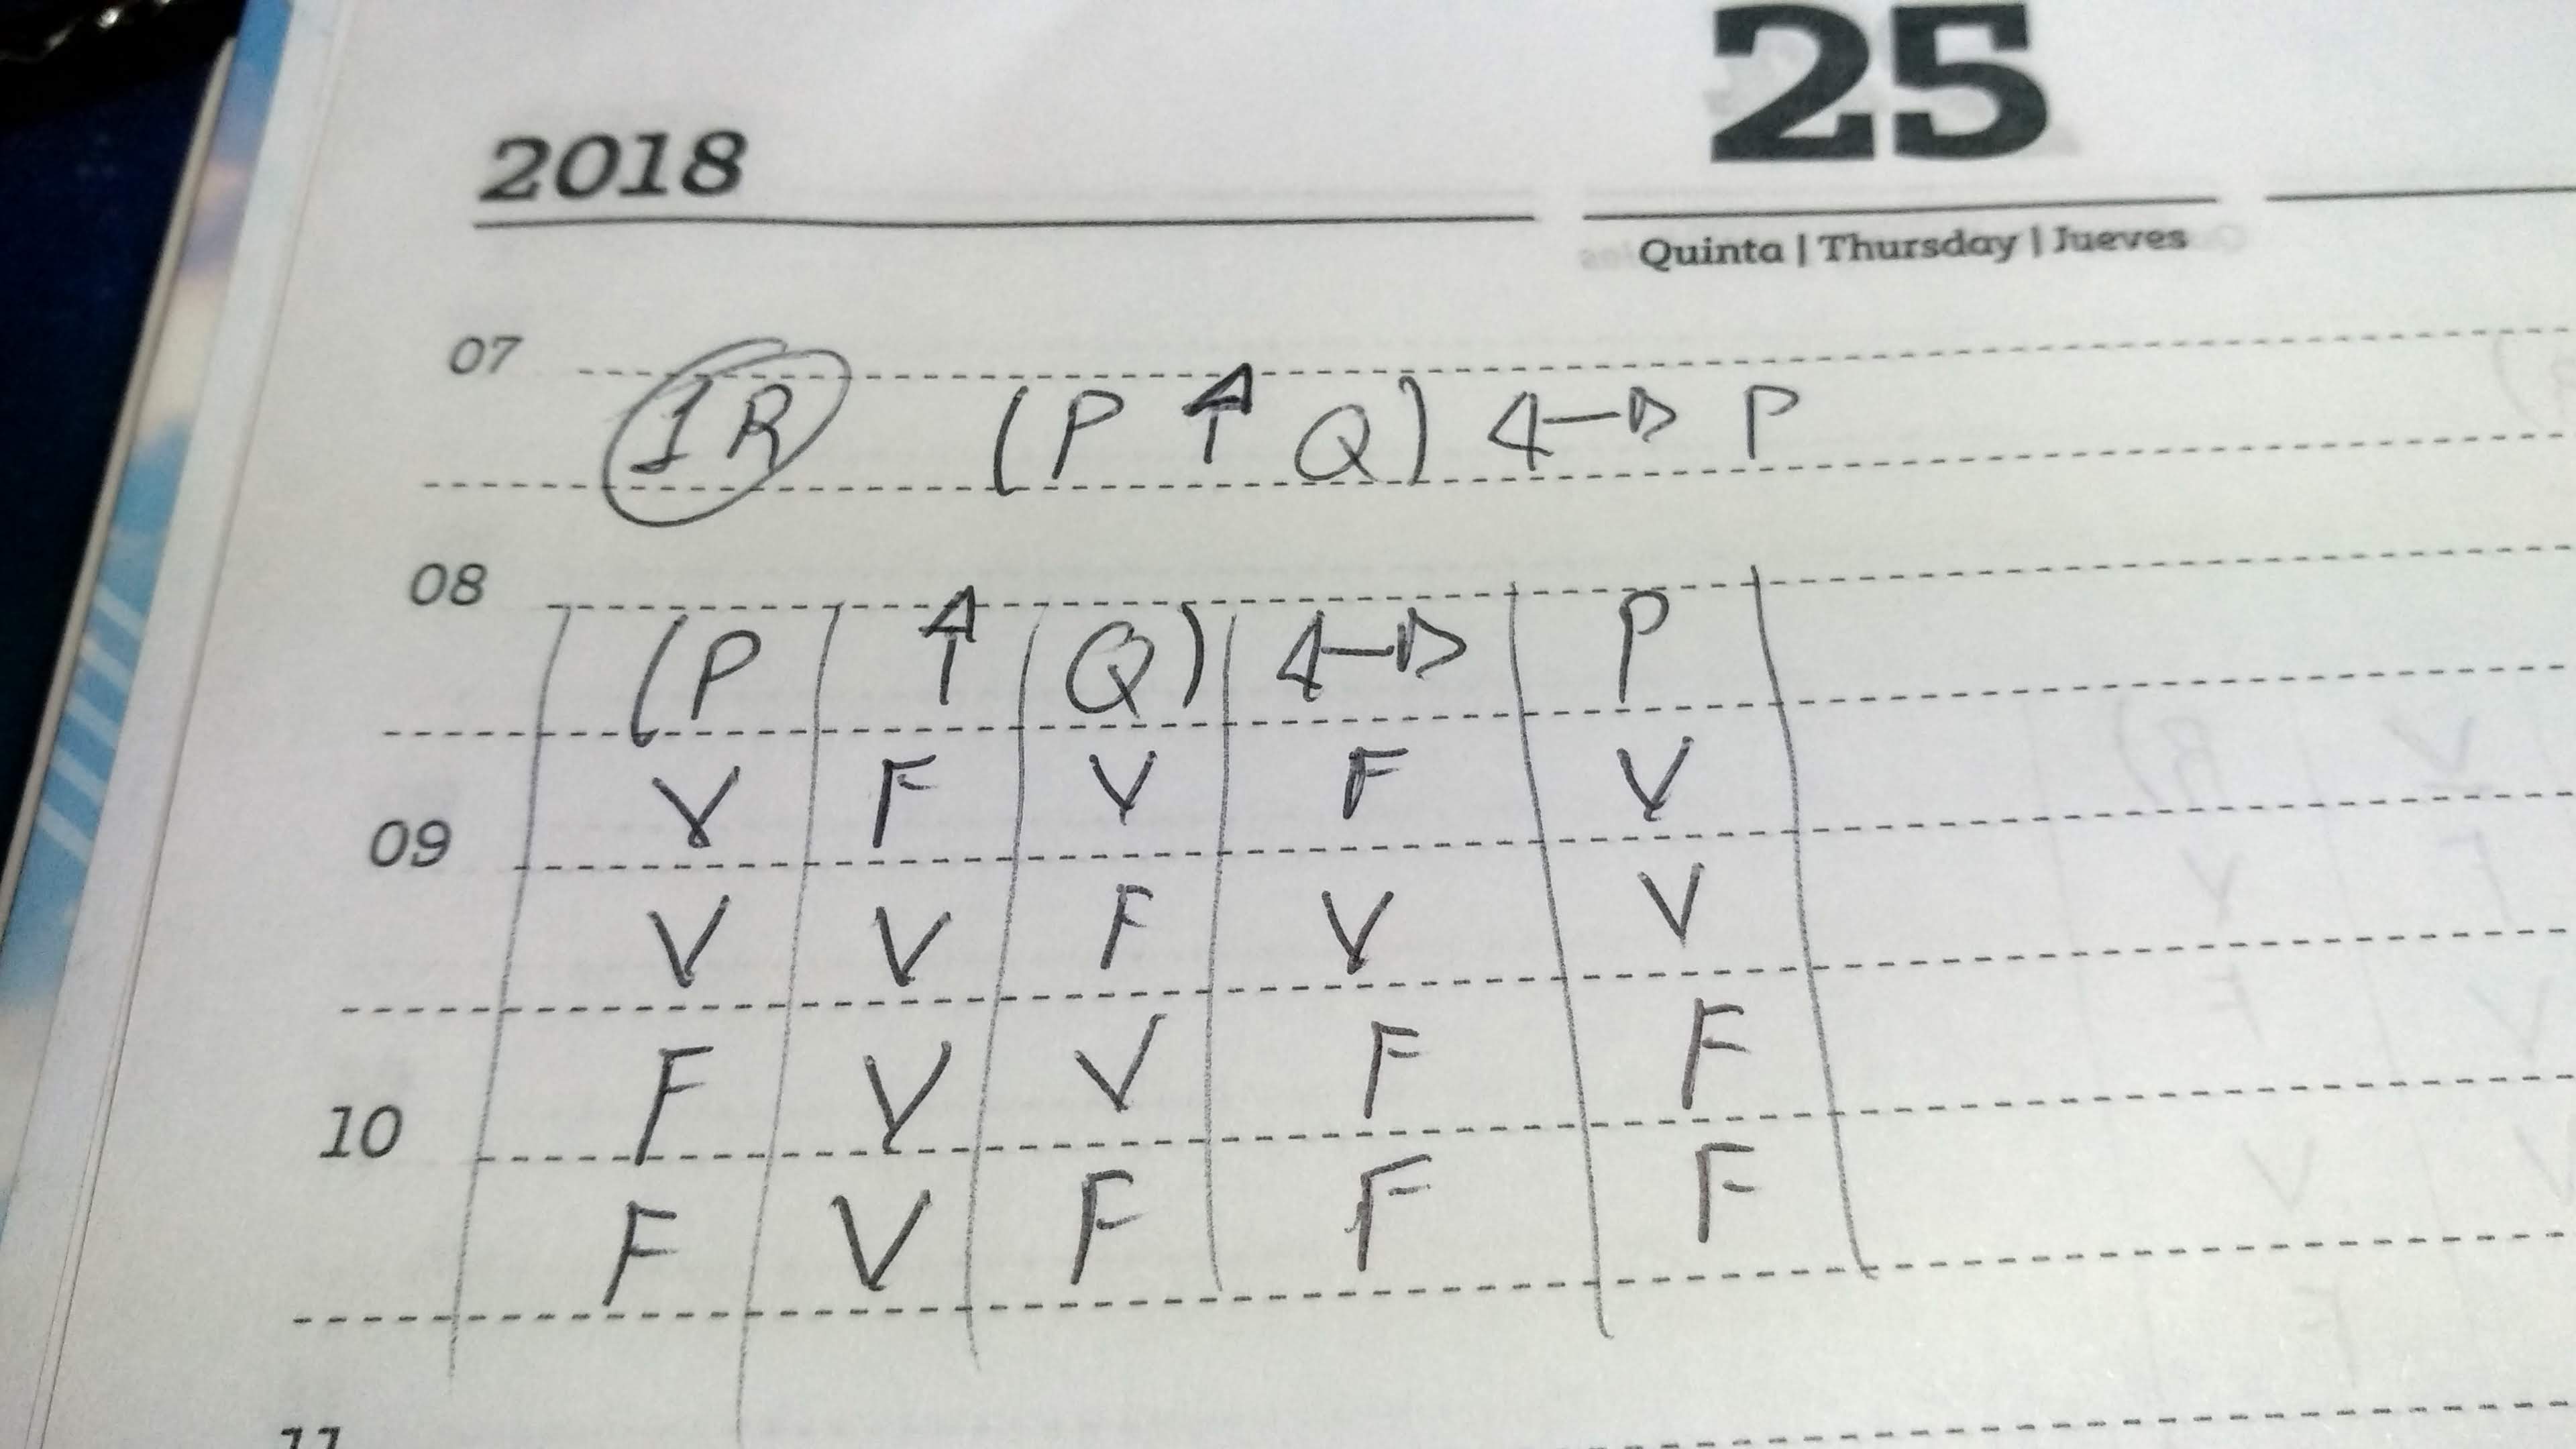 2018
25
Quinta | Thursday | Jueves
07
1R (P ↑ Q) ↔ P
08
(P ↑ Q) ↔ P
V F V F V
09
V V F V V
F V V F F
10
F V F F F
11